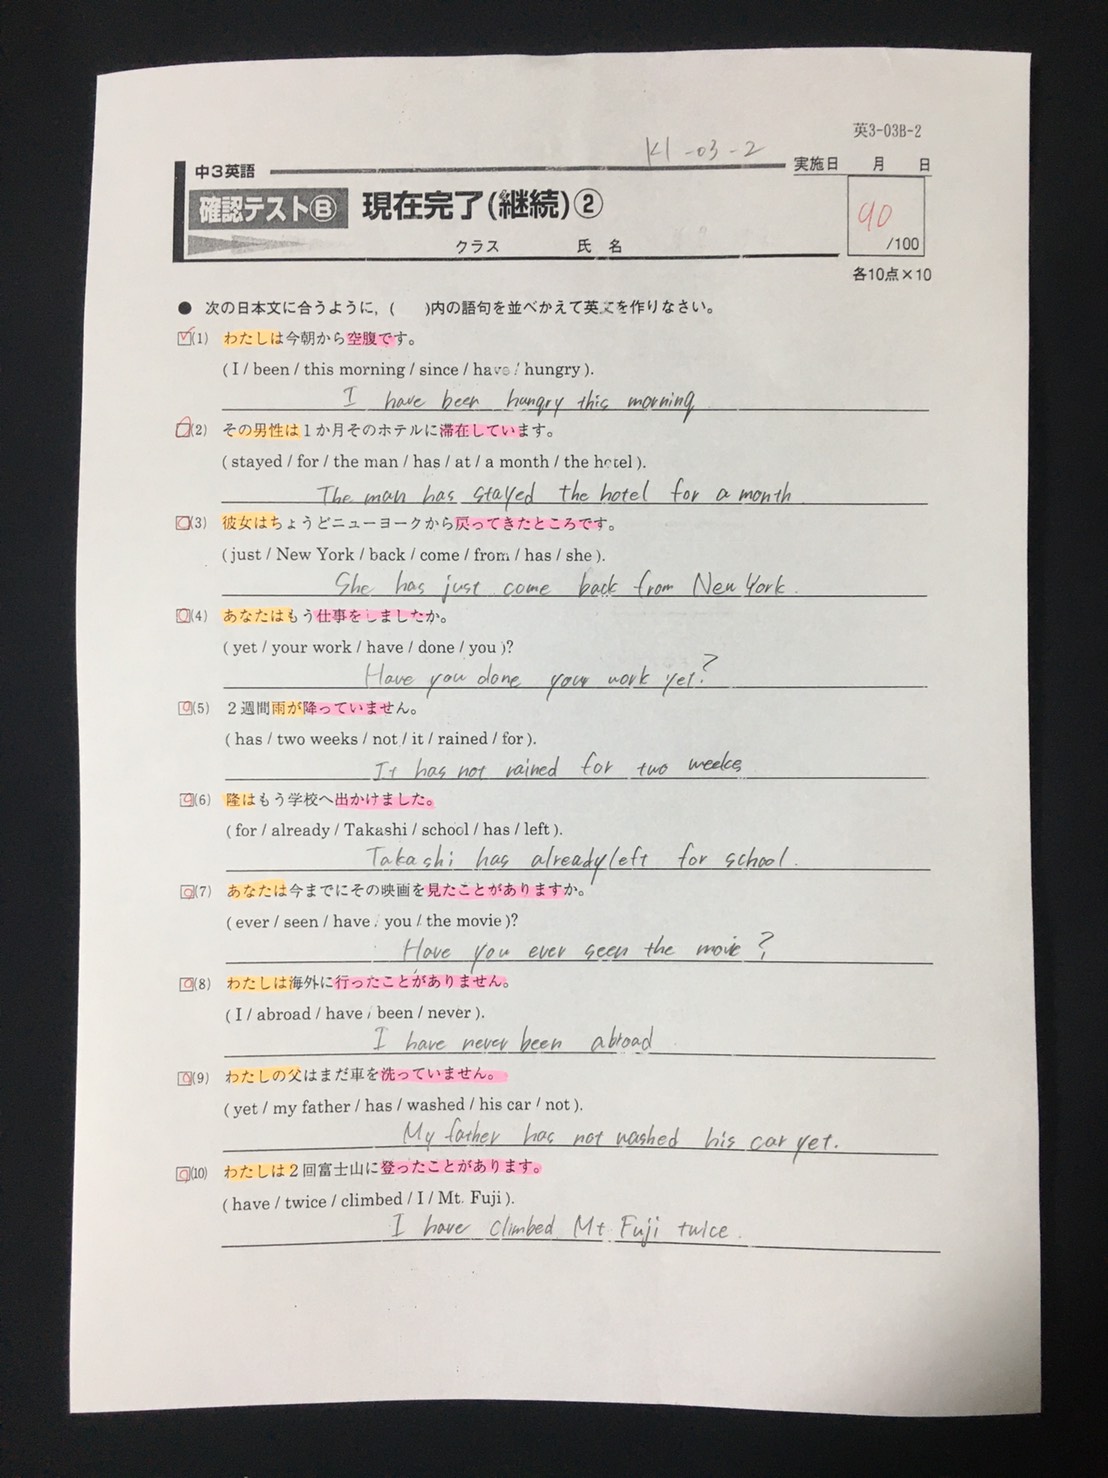 英3-03B-2
K1-03-2
中3英語
実施日 月 日
確認テストⒷ 現在完了(継続)②
90
/100
クラス 氏 名
各10点×10
● 次の日本文に合うように,( )内の語句を並べかえて英文を作りなさい。
(1) わたしは今朝から空腹です。
( I / been / this morning / since / have / hungry ).
I have been hungry this morning
(2) その男性は1か月そのホテルに滞在しています。
( stayed / for / the man / has / at / a month / the hotel ).
The man has stayed the hotel for a month
(3) 彼女はちょうどニューヨークから戻ってきたところです。
( just / New York / back / come / from / has / she ).
She has just come back from New York.
(4) あなたはもう仕事をしましたか。
( yet / your work / have / done / you )?
Have you done your work yet?
(5) 2週間雨が降っていません。
( has / two weeks / not / it / rained / for ).
It has not rained for two weeks
(6) 隆はもう学校へ出かけました。
( for / already / Takashi / school / has / left ).
Takashi has already left for school.
(7) あなたは今までにその映画を見たことがありますか。
( ever / seen / have / you / the movie )?
Have you ever seen the movie?
(8) わたしは海外に行ったことがありません。
( I / abroad / have / been / never ).
I have never been abroad
(9) わたしの父はまだ車を洗っていません。
( yet / my father / has / washed / his car / not ).
My father has not washed his car yet.
(10) わたしは2回富士山に登ったことがあります。
( have / twice / climbed / I / Mt. Fuji ).
I have climbed Mt. Fuji twice.